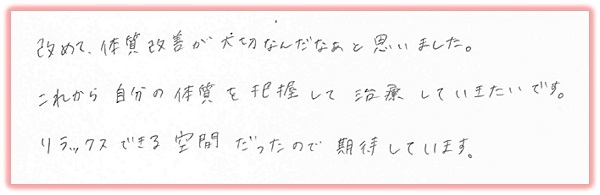 改めて、体質改善が大切なんだなぁと思いました。
これから自分の体質を把握して治療していきたいです。
リラックスできる空間だったので期待しています。